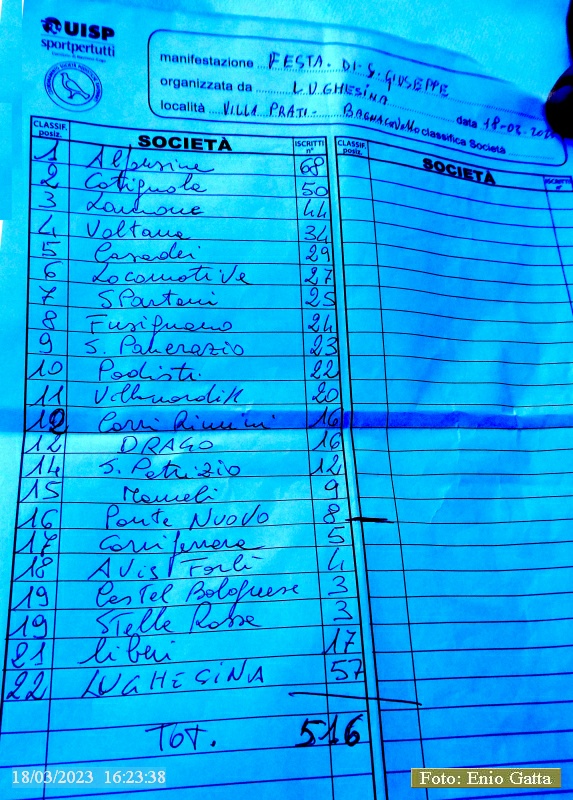 UISP
sportpertutti
manifestazione FESTA. DI S. GIUSEPPE
organizzata da LUGHESINA
località VILLA PRATI - BAGNACAVALLO data 18-03.202
classifica Società
CLASSIF. posiz. SOCIETÀ ISCRITTI n° CLASSIF. posiz. SOCIETÀ ISCRITTI n°
1 Alfonsine 68
2 Cotignola 50
3 Lamone 44
4 Voltana 34
5 Casadei 29
6 Locomotive 27
7 Spartani 25
8 Fusignano 24
9 S. Pancrazio 23
10 Podisti 22
11 Villanordik 20
12 Corri Rimini 16
12 DRAGO 16
14 S. Patrizio 12
15 Mameli 9
16 Ponte Nuovo 8
17 Corriferrara 5
18 Avis Forlì 4
19 Castel Bolognese 3
19 Stella Rossa 3
21 liberi 17
22 LUGHESINA 57
TOT. 516
18/03/2023 16:23:38
Foto: Enio Gatta